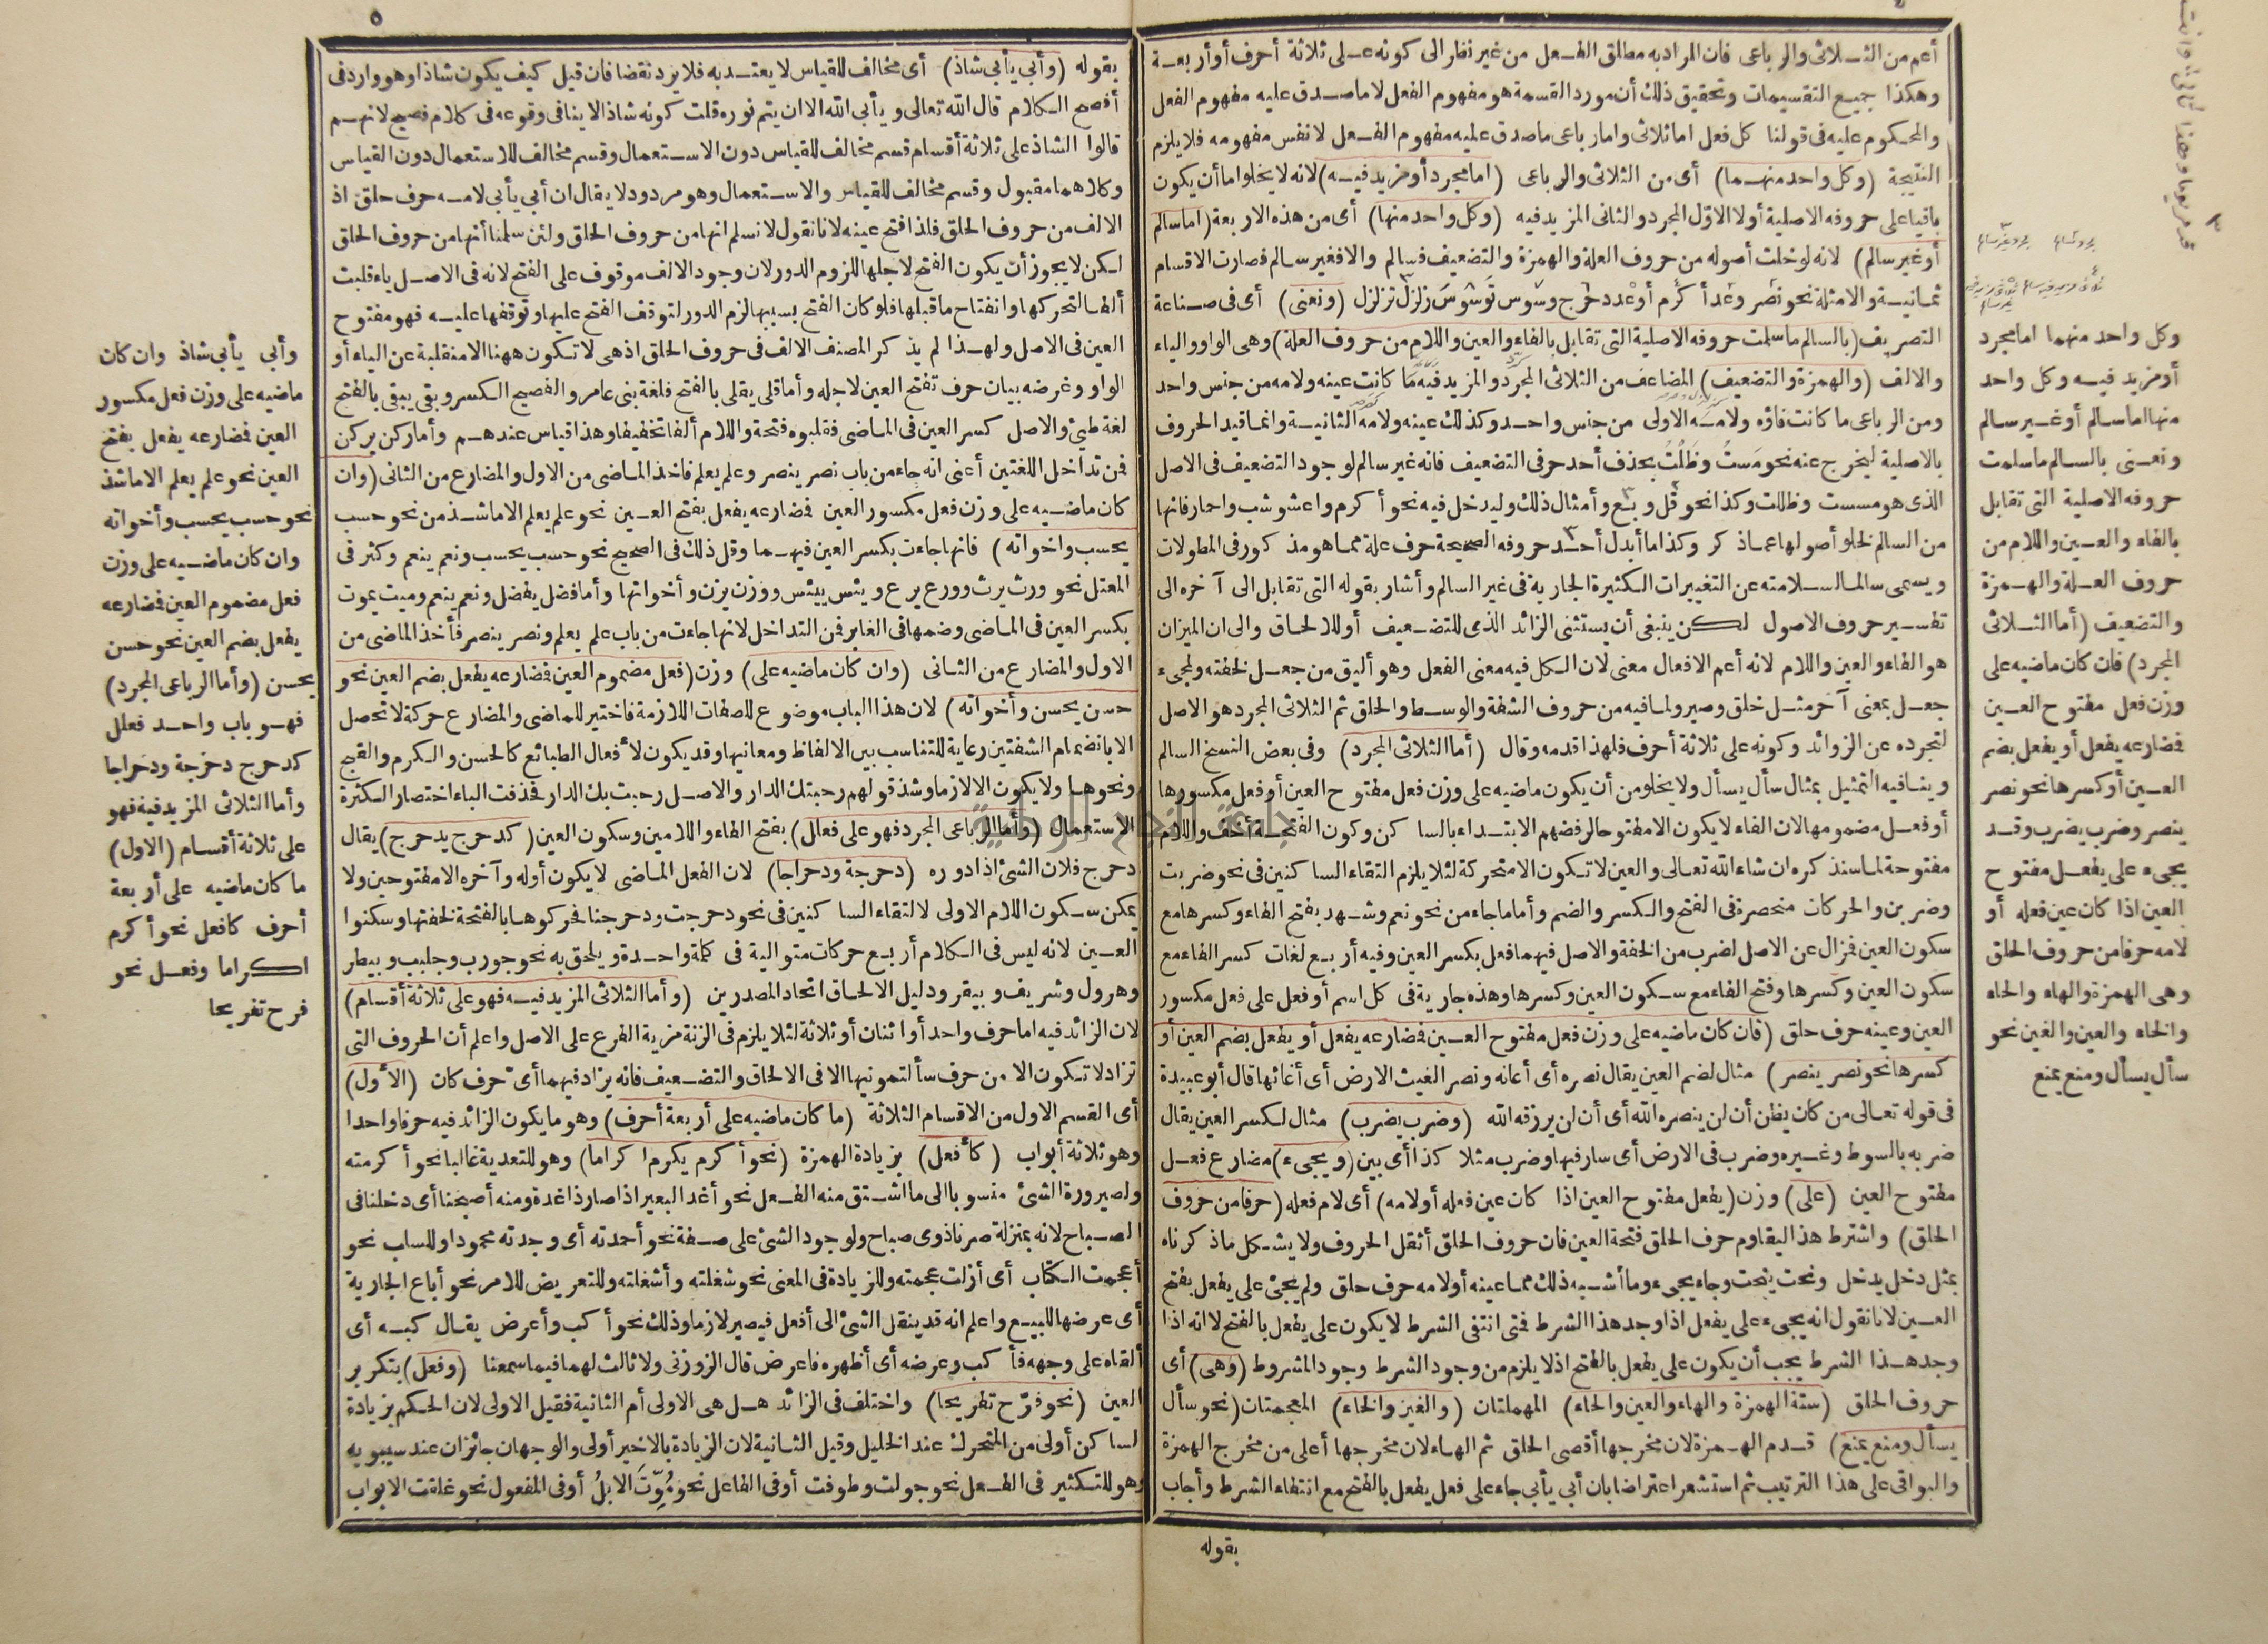 أعم من الثلاثى والرباعى فان المراد به مطلق الفعل من غير نظر الى كونه على ثلاثة أحرف أو أربعة
وهكذا جميع التقسيمات وتحقيق ذلك أن مورد القسمة هو مفهوم الفعل لا ما صدق عليه مفهوم الفعل
والمحكوم عليه فى قولنا كل فعل اما ثلاثى واما رباعى ما صدق عليه مفهوم الفعل لا نفس مفهومه فلا يلزم
النتيجة (وكل واحد منهما) أى من الثلاثى والرباعى (اما مجرد أو مزيد فيه) لانه لا يخلو اما أن يكون
باقيا على حروفه الاصلية أولا الاوّل المجرد والثانى المزيد فيه (وكل واحد منها) أى من هذه الاربعة (اما سالم
أو غير سالم) لانه لو خلت أصوله من حروف العلة والهمزة والتضعيف فسالم والا فغير سالم فصارت الاقسام
ثمانية والامثلة نحو نصر وعد أكرم أوعد دحرج وسوس توسوس زلزل تزلزل (ونعنى) أى فى صناعة
التصريف (بالسالم ما سلمت حروفه الاصلية التى تقابل بالفاء والعين واللام من حروف العلة) وهى الواو والياء
والالف (والهمزة والتضعيف) المضاعف من الثلاثى المجرد والمزيد فيه ما كانت عينه ولامه من جنس واحد
ومن الرباعى ما كانت فاؤه ولامه الاولى من جنس واحد وكذلك عينه ولامه الثانية وانما قيد الحروف
بالاصلية ليخرج عنه نحو مَستُ وظَلْتُ بحذف أحد حرفى التضعيف فانه غير سالم لوجود التضعيف فى الاصل
الذى هو مسست وظللت وكذا نحو قُل وبِع وأمثال ذلك وليدخل فيه نحو أكرم واعشوشب واحمار فانها
من السالم لخلو أصولها عما ذكر وكذا ما أبدل أحد حروفه الصحيحة حرف علة مما هو مذكور فى المطولات
ويسمى سالما لسلامته عن التغييرات الكثيرة الجارية فى غير السالم وأشار بقوله التى تقابل الى آخره الى
تفسير حروف الاصول لكن ينبغى أن يستثنى الزائد الذى للتضعيف أو للالحاق والى ان الميزان
هو الفاء والعين واللام لانه أعم الافعال معنى لان الكل فيه معنى الفعل وهو أليق من جعل لخفته ولمجىء
جعل بمعنى آخر مثل خلق وصير ولما فيه من حروف الشفة والوسط والحلق ثم الثلاثى المجرد هو الاصل
لتجرده عن الزوائد وكونه على ثلاثة أحرف فلهذا قدمه وقال (أما الثلاثى المجرد) وفى بعض النسخ السالم
وينافيه التمثيل بمثال سأل يسأل ولا يخلو من أن يكون ماضيه على وزن فعل مفتوح العين أو فعل مكسورها
أو فعل مضمومها لان الفاء لا يكون الا مفتوحا لرفضهم الابتداء بالساكن وكون الفتحة أخف واللام
مفتوحة لما سنذكره ان شاء الله تعالى والعين لا تكون الا متحركة لئلا يلزم التقاء الساكنين فى نحو ضربت
وضربن والحركات منحصرة فى الفتح والكسر والضم وأما ما جاء من نحو نعم وشهد بفتح الفاء وكسرها مع
سكون العين فمزال عن الاصل لضرب من الخفة والاصل فيهما فعل بكسر العين وفيه أربع لغات كسر الفاء مع
سكون العين وكسرها وفتح الفاء مع سكون العين وكسرها وهذه جارية فى كل اسم أو فعل على فعل مكسور
العين وعينه حرف حلق (فان كان ماضيه على وزن فعل مفتوح العين فمضارعه يفعل أو يفعل بضم العين أو
كسرها نحو نصر ينصر) مثال لضم العين يقال نصره أى أعانه ونصر الغيث الارض أى أغاثها قال أبو عبيدة
فى قوله تعالى من كان يظن أن لن ينصره الله أى أن لن يرزقه الله (وضرب يضرب) مثال لكسر العين يقال
ضربه بالسوط وغيره وضرب فى الارض أى سار فيها وضرب مثلا كذا أى بين (ويجىء) مضارع فعل
مفتوح العين (على) وزن (يفعل مفتوح العين اذا كان عين فعله أو لامه) أى لام فعله (حرفا من حروف
الحلق) واشترط هذا ليقاوم حرف الحلق فتحة العين فان حروف الحلق أثقل الحروف ولا يشكل ماذكرناه
بمثل دخل يدخل ونحت ينحت وجاء يجىء وما أشبه ذلك مما عينه أو لامه حرف حلق ولم يجئ على يفعل بفتح
العين لانا نقول انه يجىء على يفعل اذا وجد هذا الشرط فمتى انتفى الشرط لا يكون على يفعل بالفتح لا انه اذا
وجد هذا الشرط يجب أن يكون على يفعل بالفتح اذ لا يلزم من وجود الشرط وجود المشروط (وهى) أى
حروف الحلق (ستة الهمزة والهاء والعين والحاء) المهملتان (والغين والخاء) المعجمتان (نحو سأل
يسأل ومنع يمنع) قدم الهمزة لان مخرجها أقصى الحلق ثم الهاء لان مخرجها أعلى من مخرج الهمزة
والبواقى على هذا الترتيب ثم استشعر اعتراضا بان أبى يأبى جاء على فعل يفعل بالفتح مع انتفاء الشرط وأجاب
بقوله
وكل واحد منهما اما مجرد
أو مزيد فيه وكل واحد
منها اما سالم أو غير سالم
ونعنى بالسالم ما سلمت
حروفه الاصلية التى تقابل
بالفاء والعين واللام من
حروف العلة والهمزة
والتضعيف (أما الثلاثى
المجرد) فان كان ماضيه على
وزن فعل مفتوح العين
فمضارعه يفعل أو يفعل بضم
العين أو كسرها نحو نصر
ينصر وضرب يضرب وقد
يجىء على يفعل مفتوح
العين اذا كان عين فعله أو
لامه حرفا من حروف الحلق
وهى الهمزة والهاء والحاء
والخاء والعين والغين نحو
سأل يسأل ومنع يمنع
٥
بقوله (وأبى يأبى شاذ) أى مخالف للقياس لا يعتد به فلا يرد نقضا فان قيل كيف يكون شاذا وهو وارد فى
أفصح الكلام قال الله تعالى ويأبى الله الا ان يتم نوره قلت كونه شاذا لا ينافى وقوعه فى كلام فصيح لانهم
قالوا الشاذ على ثلاثة أقسام قسم مخالف للقياس دون الاستعمال وقسم مخالف للاستعمال دون القياس
وكلاهما مقبول وقسم مخالف للقياس والاستعمال وهو مردود لا يقال ان أبى يأبى لامه حرف حلق اذ
الالف من حروف الحلق فلذا فتح عينه لانا نقول لا نسلم انها من حروف الحلق ولئن سلمنا أنها من حروف الحلق
لكن لا يجوز أن يكون الفتح لاجلها للزوم الدور لان وجود الالف موقوف على الفتح لانه فى الاصل ياء قلبت
ألفا لتحركها وانفتاح ما قبلها فلو كان الفتح بسببها لزم الدور لتوقف الفتح عليها وتوقفها عليه فهو مفتوح
العين فى الاصل ولهذا لم يذكر المصنف الالف فى حروف الحلق اذ هى لا تكون ههنا الا منقلبة عن الياء أو
الواو وغرضه بيان حرف تفتح العين لاجله وأما قلى يقلى بالفتح فلغة بنى عامر والفصيح الكسر وبقى يبقى بالفتح
لغة طيئ والاصل كسر العين فى الماضى فقلبوه فتحة واللام ألفا تخفيفا وهذا قياس عندهم وأما ركن يركن
فمن تداخل اللغتين أعنى انه جاء من باب نصر ينصر وعلم يعلم فاخذ الماضى من الاول والمضارع من الثانى (وان
كان ماضيه على وزن فعل مكسور العين فمضارعه يفعل بفتح العين نحو علم يعلم الا ما شذ من نحو حسب
يحسب واخواته) فانها جاءت بكسر العين فيهما وقل ذلك فى الصحيح نحو حسب يحسب ونعم ينعم وكثر فى
المعتل نحو ورث يرث وورع يرع ويئس ييئس ووزن يزن وأخواتها وأما فضل يفضل ونعم ينعم وميت يموت
بكسر العين فى الماضى وضمها فى الغابر فمن التداخل لانها جاءت من باب علم يعلم ونصر ينصر فأخذ الماضى من
الاول والمضارع من الثانى (وان كان ماضيه على) وزن (فعل مضموم العين فمضارعه يفعل بضم العين نحو
حسن يحسن وأخواته) لان هذا الباب موضوع للصفات اللازمة فاختير للماضى والمضارع حركة لا تحصل
الا بانضمام الشفتين رعاية للتناسب بين الالفاظ ومعانيها وقد يكون لأفعال الطبائع كالحسن والكرم والقبح
ونحوها ولا يكون الا لازما وشذ قولهم رحبتك الدار والاصل رحبت بك الدار فحذفت الباء اختصارا لكثرة
الاستعمال (وأما الرباعى المجرد فهو على فعلل) بفتح الفاء واللامين وسكون العين (كدحرج يدحرج) يقال
دحرج فلان الشئ اذا دوره (دحرجة ودحراجا) لان الفعل الماضى لا يكون أوله وآخره الا مفتوحين ولا
يمكن سكون اللام الاولى لالتقاء الساكنين فى نحو دحرجت ودحرجنا فحركوها بالفتحة لخفتها وسكنوا
العين لانه ليس فى الكلام أربع حركات متوالية فى كلمة واحدة ويلحق به نحو جورب وجلبب وبيطر
وهرول وشريف وبيقر ودليل الالحاق اتحاد المصدرين (وأما الثلاثى المزيد فيه فهو على ثلاثة أقسام)
لان الزائد فيه اما حرف واحد أو اثنان أو ثلاثة لئلا يلزم فى الزنة مزية الفرع على الاصل واعلم أن الحروف التى
تزاد لا تكون الا من حرف سألتمونيها الا فى الالحاق والتضعيف فانه يزاد فيهما أىّ حرف كان (الأول)
أى القسم الاول من الاقسام الثلاثة (ما كان ماضيه على أربعة أحرف) وهو ما يكون الزائد فيه حرفا واحدا
وهو ثلاثة أبواب (كأفعل) بزيادة الهمزة (نحو أكرم يكرم اكراما) وهو للتعدية غالبا نحو أكرمته
ولصيرورة الشئ منسوبا الى ما اشتق منه الفعل نحو أغد البعير اذا صار ذا غدة ومنه أصبحنا أى دخلنا فى
الصباح لانه بمنزلة صرنا ذوى صباح ولوجود الشئ على صفة نحو أحمدته أى وجدته محمودا وللسلب نحو
أعجمت الكتاب أى أزلت عجمته وللزيادة فى المعنى نحو شغلته وأشغلته وللتعريض للامر نحو أباع الجارية
أى عرضها للبيع واعلم انه قد ينقل الشئ الى أفعل فيصير لازما وذلك نحو أكب وأعرض يقال كبه أى
ألقاه على وجهه فأكب وعرضه أى أظهره فاعرض قال الزوزنى ولا ثالث لهما فيما سمعنا (وفعل) بتكرير
العين (نحو فرّح تفريحا) واختلف فى الزائد هل هى الاولى أم الثانية فقيل الاولى لان الحكم بزيادة
الساكن أولى من المتحرك عند الخليل وقيل الثانية لان الزيادة بالاخير أولى والوجهان جائزان عند سيبويه
وهو للتكثير فى الفعل نحو جولت وطوفت أو فى الفاعل نحو مُوِّتَ الابلُ أو فى المفعول نحو غلقت الابواب
وأبى يأبى شاذ وان كان
ماضيه على وزن فعل مكسور
العين فمضارعه يفعل بفتح
العين نحو علم يعلم الا ما شذ
نحو حسب يحسب وأخواته
وان كان ماضيه على وزن
فعل مضموم العين فمضارعه
يفعل بضم العين نحو حسن
يحسن (وأما الرباعى المجرد)
فهو باب واحد فعلل
كدحرج دحرجة ودحراجا
وأما الثلاثى المزيد فيه فهو
على ثلاثة أقسام (الاول)
ما كان ماضيه على أربعة
أحرف كافعل نحو أكرم
اكراما وفعل نحو
فرح تفريحا